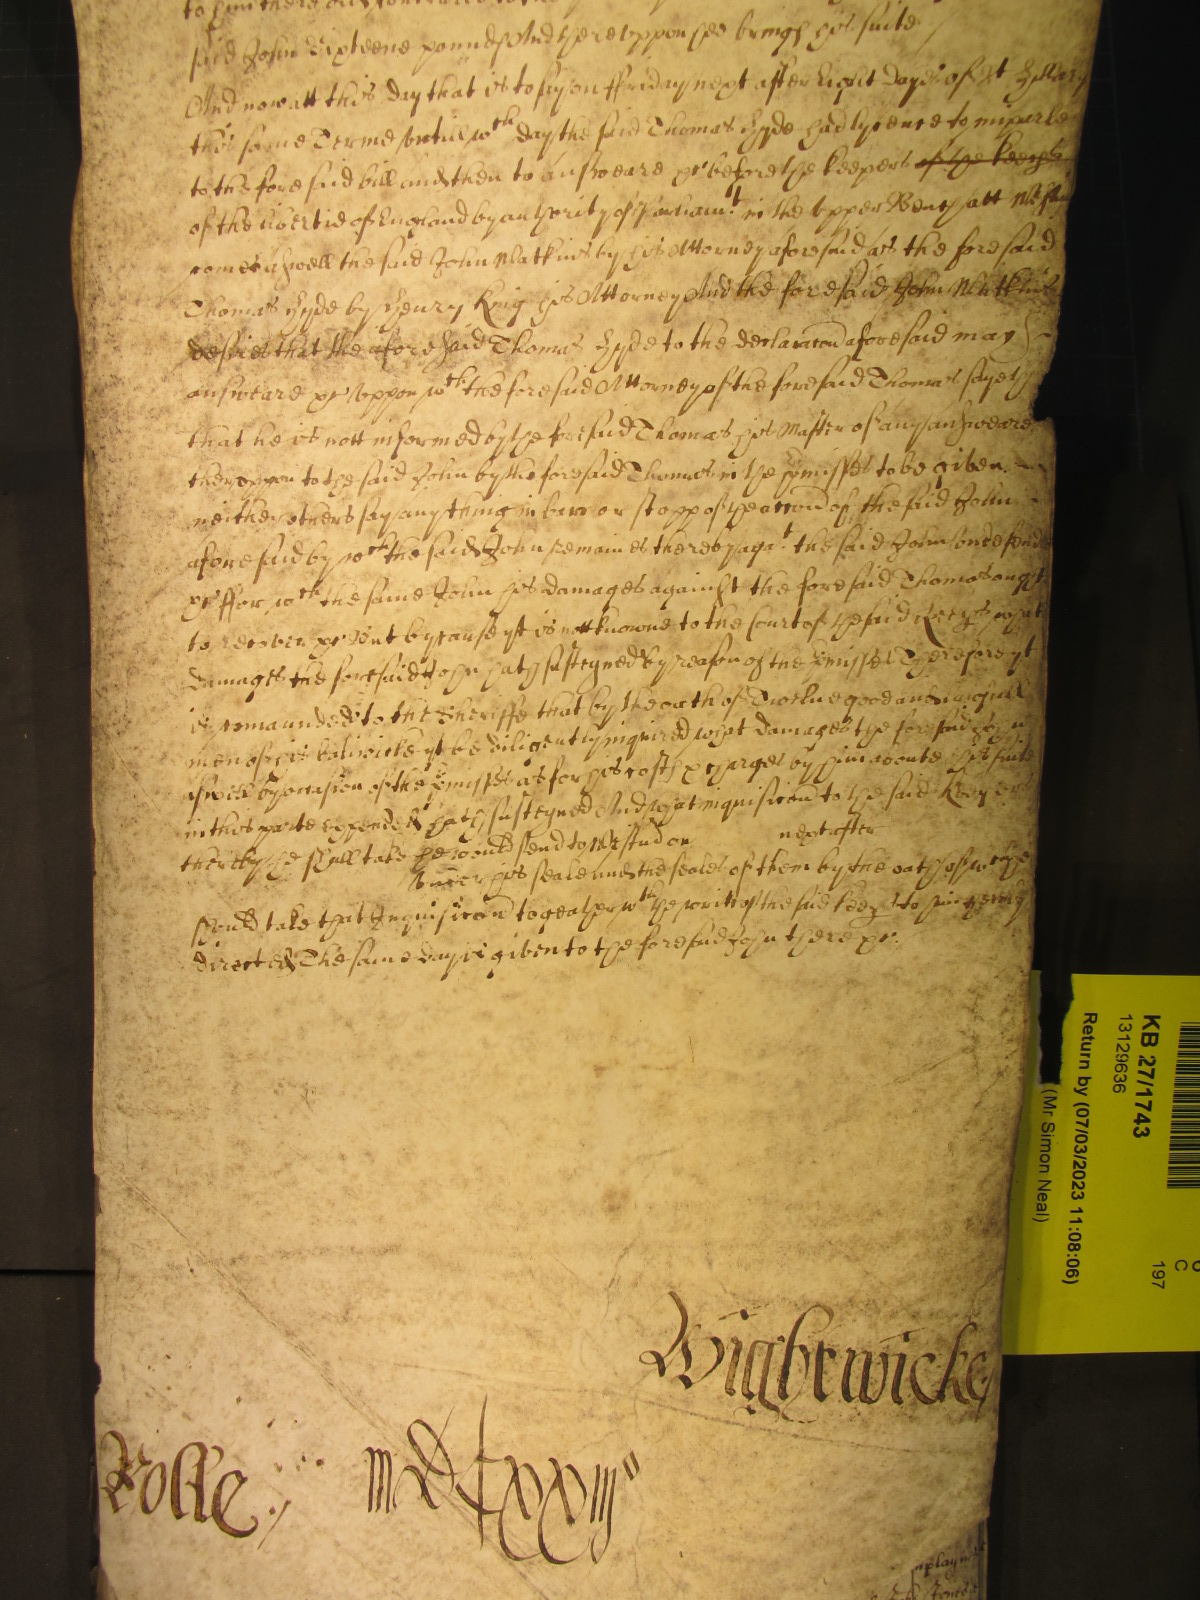 to him there
said John Sixteene pounds And thereuppon hee brings his suite
And now att this day that is to say on ffriday next after Eight Dayes of St Hillary
this same Terme untill wch day the said Thomas Hyde had lycence to imparle
to the foresaid bill and then to answeare &c before the keepers of the keeps
of the libertie of England by authority of Parliamt in the Upper Bench att
comes aswell the said John Watkins by his Attorney aforesaid as the foresaid
Thomas Hyde by Henry King his Attorney And the foresaid John Watkins
desires that the aforesaid Thomas Hyde to the declaracon aforesaid may
answeare &c Uppon wch the foresaid Attorney of the foresaid Thomas sayeth
that he is nott informed by the foresaid Thomas his Master of any answeare
thereuppon to the said John by the foresaid Thomas in the premisses to be given
neither others say any thing in barr or stopp of the accon of the said John
aforesaid by wch the said John remaines thereby agat the said John undefended
&c ffor wch the same John his damages against the foresaid Thomas ought
to recover &c But because yt is nott knowne to the Court of the said keeps what
damages the foresaid John hath susteyned by reason of the premisses Therefore yt
is comaunded to the Sheriffe that by the oath of Twelve good and lawfull
men of his baliwicke yt be diligently inquired what damages the foresaid John
aswell by occasion of the premisses as for his costs & charges by him aboute his suite
in this parte expended hath susteyned And that inquisicon to the said keepers
thereby he shall take he would send to Westm on next after
under his seale and the seales of them by the oath of whose
should take that Inquisicon togeather wth the writt of the said keeps to him
directed The same day is given to the foresaid John there &c.
Wightwicke
Rolle
KB 27/1743
13129636
Return by (07/03/2023 11:08:06)
(Mr Simon Neal)
C
197